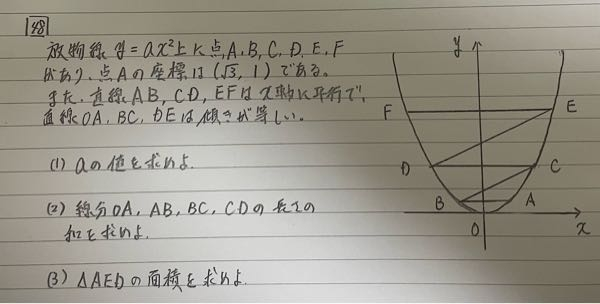 48
放物線 y=ax²上に点A,B,C,D,E,F
があり、点Aの座標は(√3, 1)である。
また、直線AB, CD, EFはx軸に平行で、
直線OA, BC, DEは傾きが等しい。
(1) aの値を求めよ.
(2) 線分OA, AB, BC, CDの長さの
和を求めよ.
(3) △AEDの面積を求めよ
y
F
E
D
C
B
A
O
x